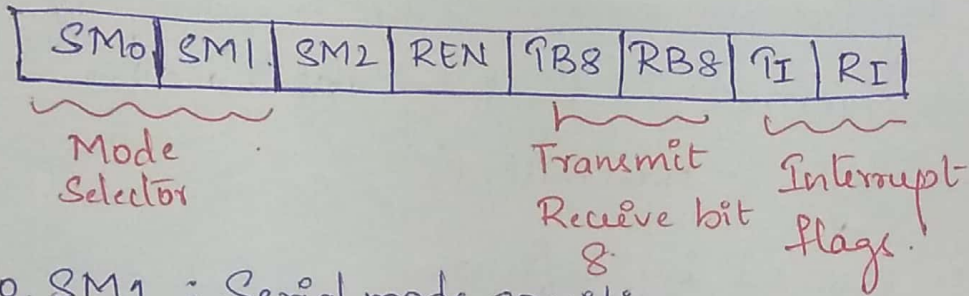 SM0 SM1 SM2 REN TB8 RB8 TI RI
Mode
Selector
Transmit
Receive bit
8
Interrupt
flags!
SM1 : Serial mode